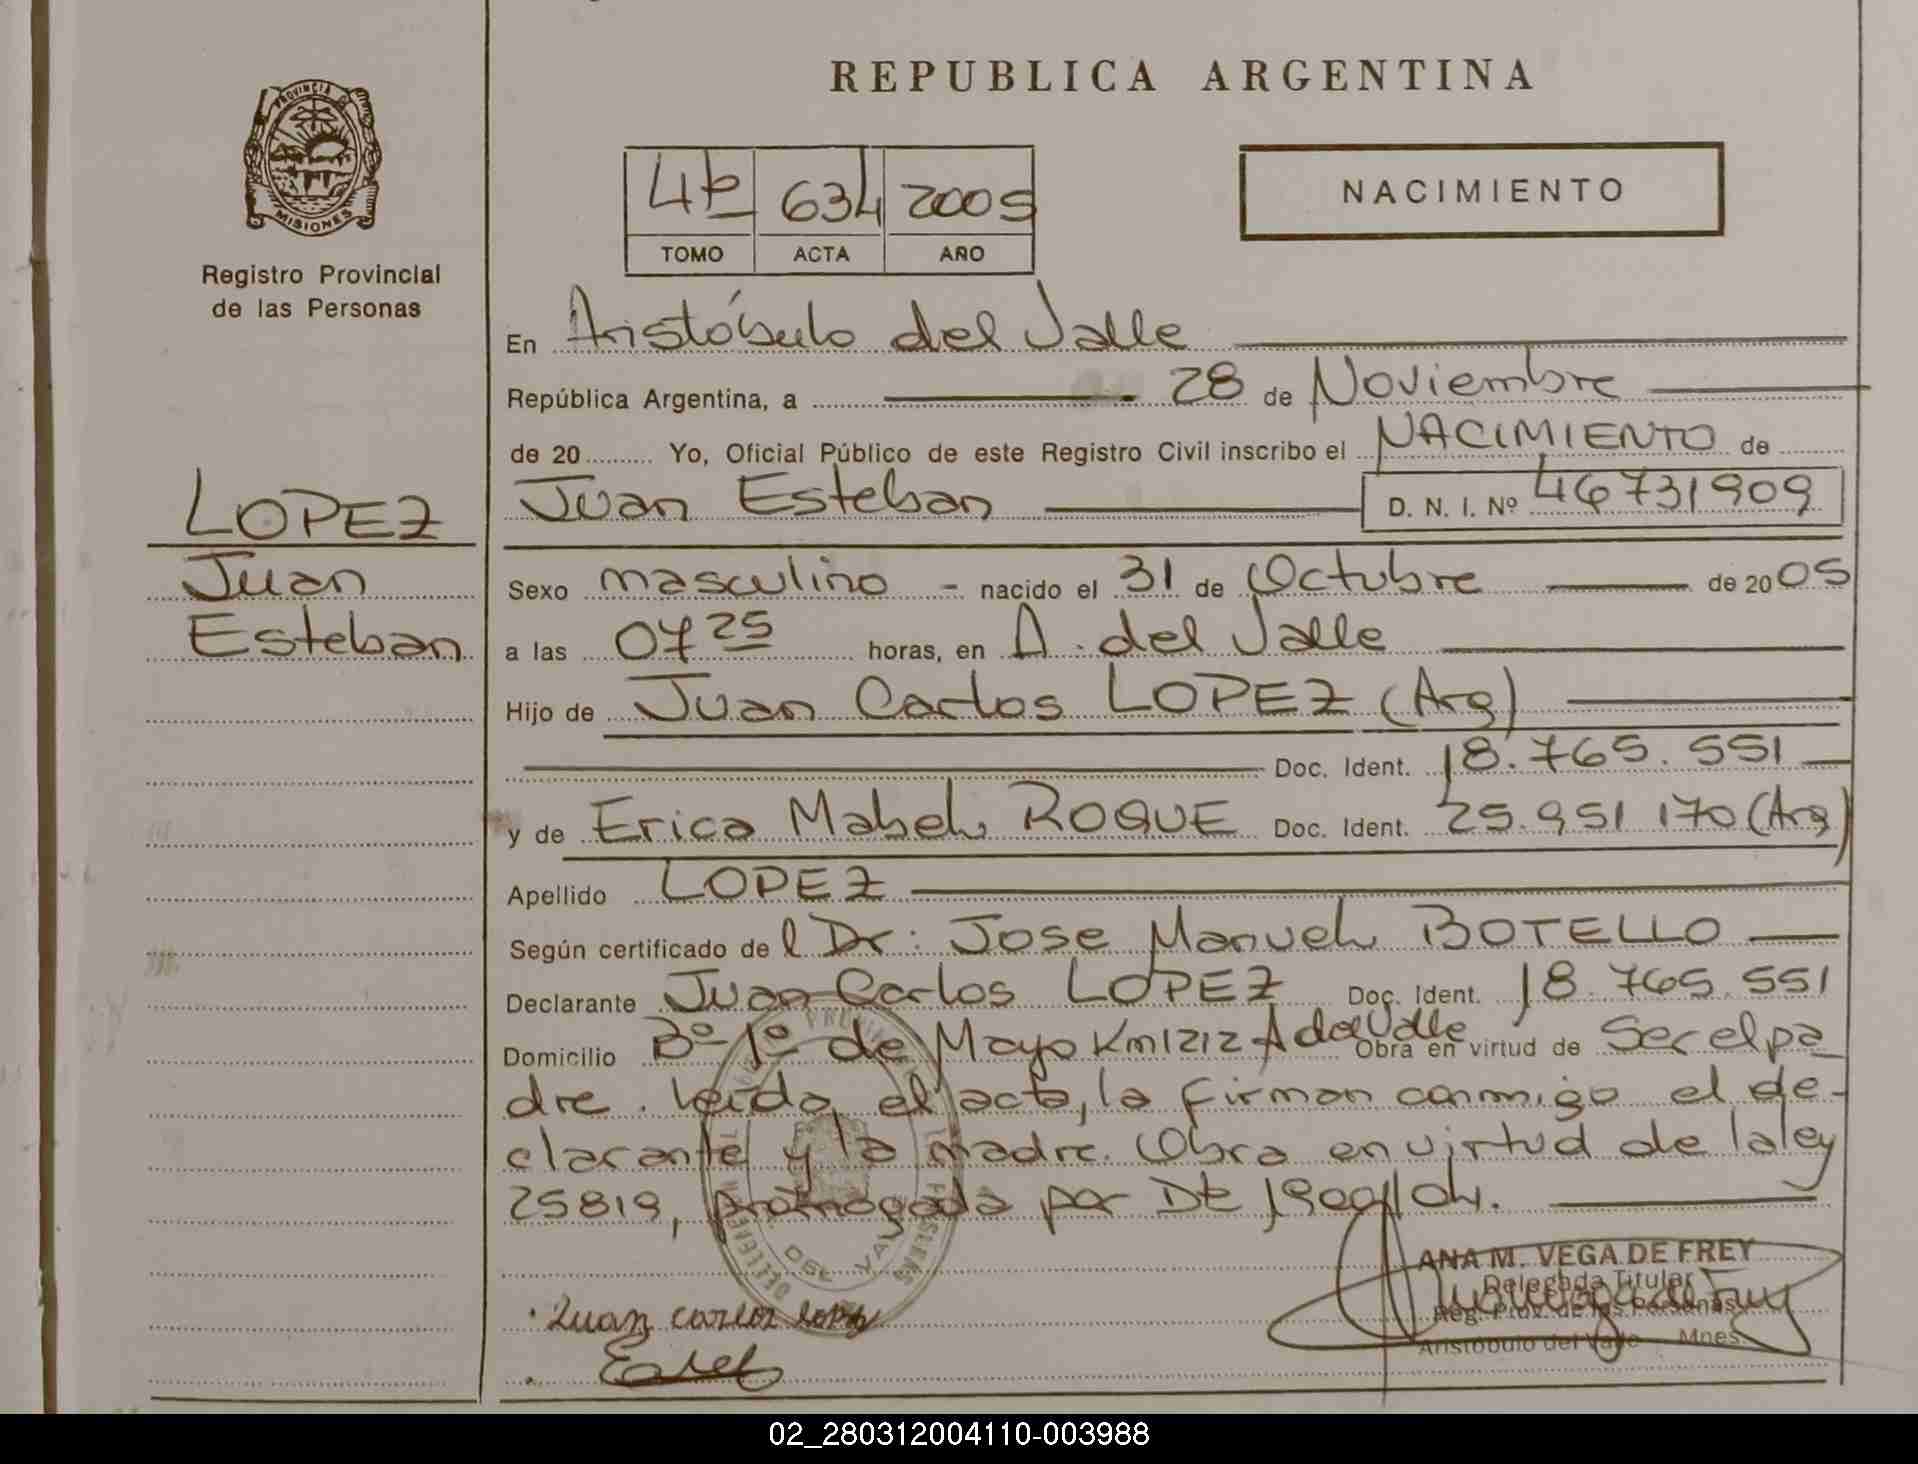 REPUBLICA ARGENTINA
PROVINCIA DE
MISIONES
Registro Provincial
de las Personas
4b 634 2005
TOMO ACTA AÑO
NACIMIENTO
En Aristóbulo del Valle
República Argentina, a 28 de Noviembre
de 20 Yo, Oficial Público de este Registro Civil inscribo el NACIMIENTO de
LOPEZ
Juan Esteban D. N. I. Nº 46731909
Juan
Esteban
Sexo masculino - nacido el 31 de Octubre de 2005
a las 07 25 horas, en A. del Valle
Hijo de Juan Carlos LOPEZ (Arg)
Doc. Ident. 18.765.551
y de Erica Mabel ROQUE Doc. Ident. 25.951 170 (Arg)
Apellido LOPEZ
Según certificado de l Dr: Jose Manuel BOTELLO
Declarante Juan Carlos LOPEZ Doc. Ident. 18.765.551
Domicilio Bº 1º de Mayo Km1212 A del Valle Obra en virtud de Ser el pa
dre. Leída el acta, la firman conmigo el de-
clarante y la madre. Obra en virtud de la ley
25819, prorrogada por Dt 1900/04.
DEL VA
ANA M. VEGA DE FREY
Delegada Titular
Reg. Prov. de las Personas
Aristóbulo del Valle Mnes.
Juan carlos lopez
02_280312004110-003988